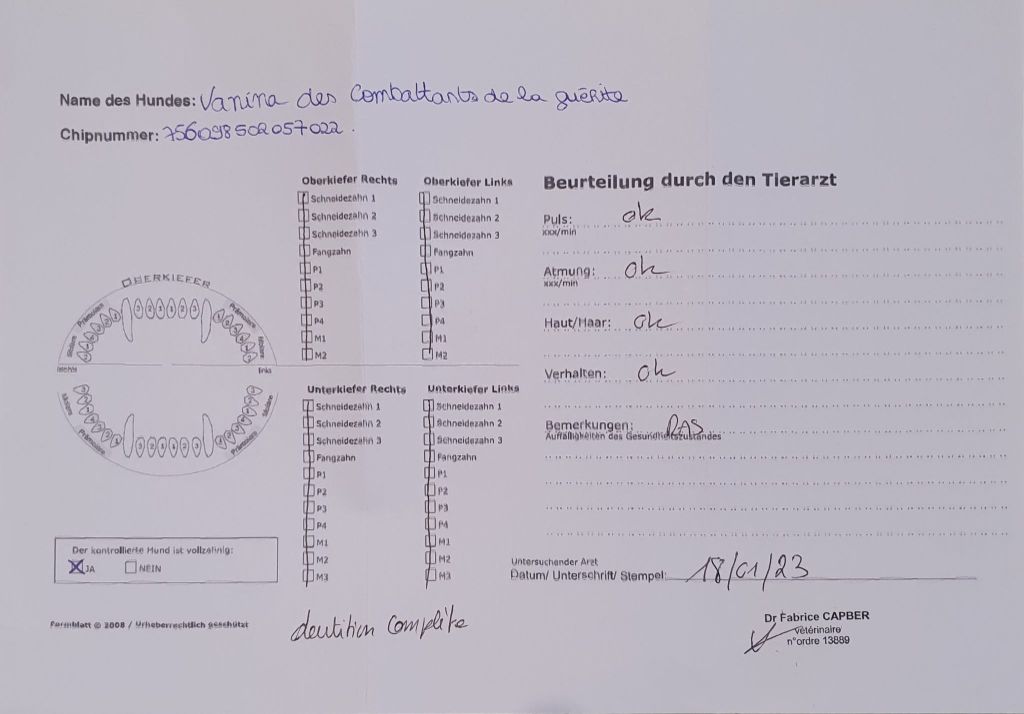 Name des Hundes: Vanina des Combattants de la guérite
Chipnummer: 756098502057022.
Oberkiefer Rechts
Schneidezahn 1
Schneidezahn 2
Schneidezahn 3
Fangzahn
P1
P2
P3
P4
M1
M2
Oberkiefer Links
Schneidezahn 1
Schneidezahn 2
Schneidezahn 3
Fangzahn
P1
P2
P3
P4
M1
M2
OBERKIEFER
Prämolare
Prämolare
Molare
Molare
3 2 1 1 2 3
rechts
links
Molare
Molare
Prämolare
Prämolare
3 2 1 1 2 3
Unterkiefer Rechts
Schneidezahn 1
Schneidezahn 2
Schneidezahn 3
Fangzahn
P1
P2
P3
P4
M1
M2
M3
Unterkiefer Links
Schneidezahn 1
Schneidezahn 2
Schneidezahn 3
Fangzahn
P1
P2
P3
P4
M1
M2
M3
Der kontrollierte Hund ist vollzahnig:
X JA NEIN
Formblatt © 2008 / Urheberrechtlich geschützt
dentition complète
Beurteilung durch den Tierarzt
Puls: ok
xxx/min
Atmung: ok
xxx/min
Haut/Haar: ok
Verhalten: ok
Bemerkungen: RAS
Auffälligkeiten des Gesundheitszustandes
Untersuchender Arzt
Datum/ Unterschrift/ Stempel: 18/01/23
Dr Fabrice CAPBER
vétérinaire
n°ordre 13889